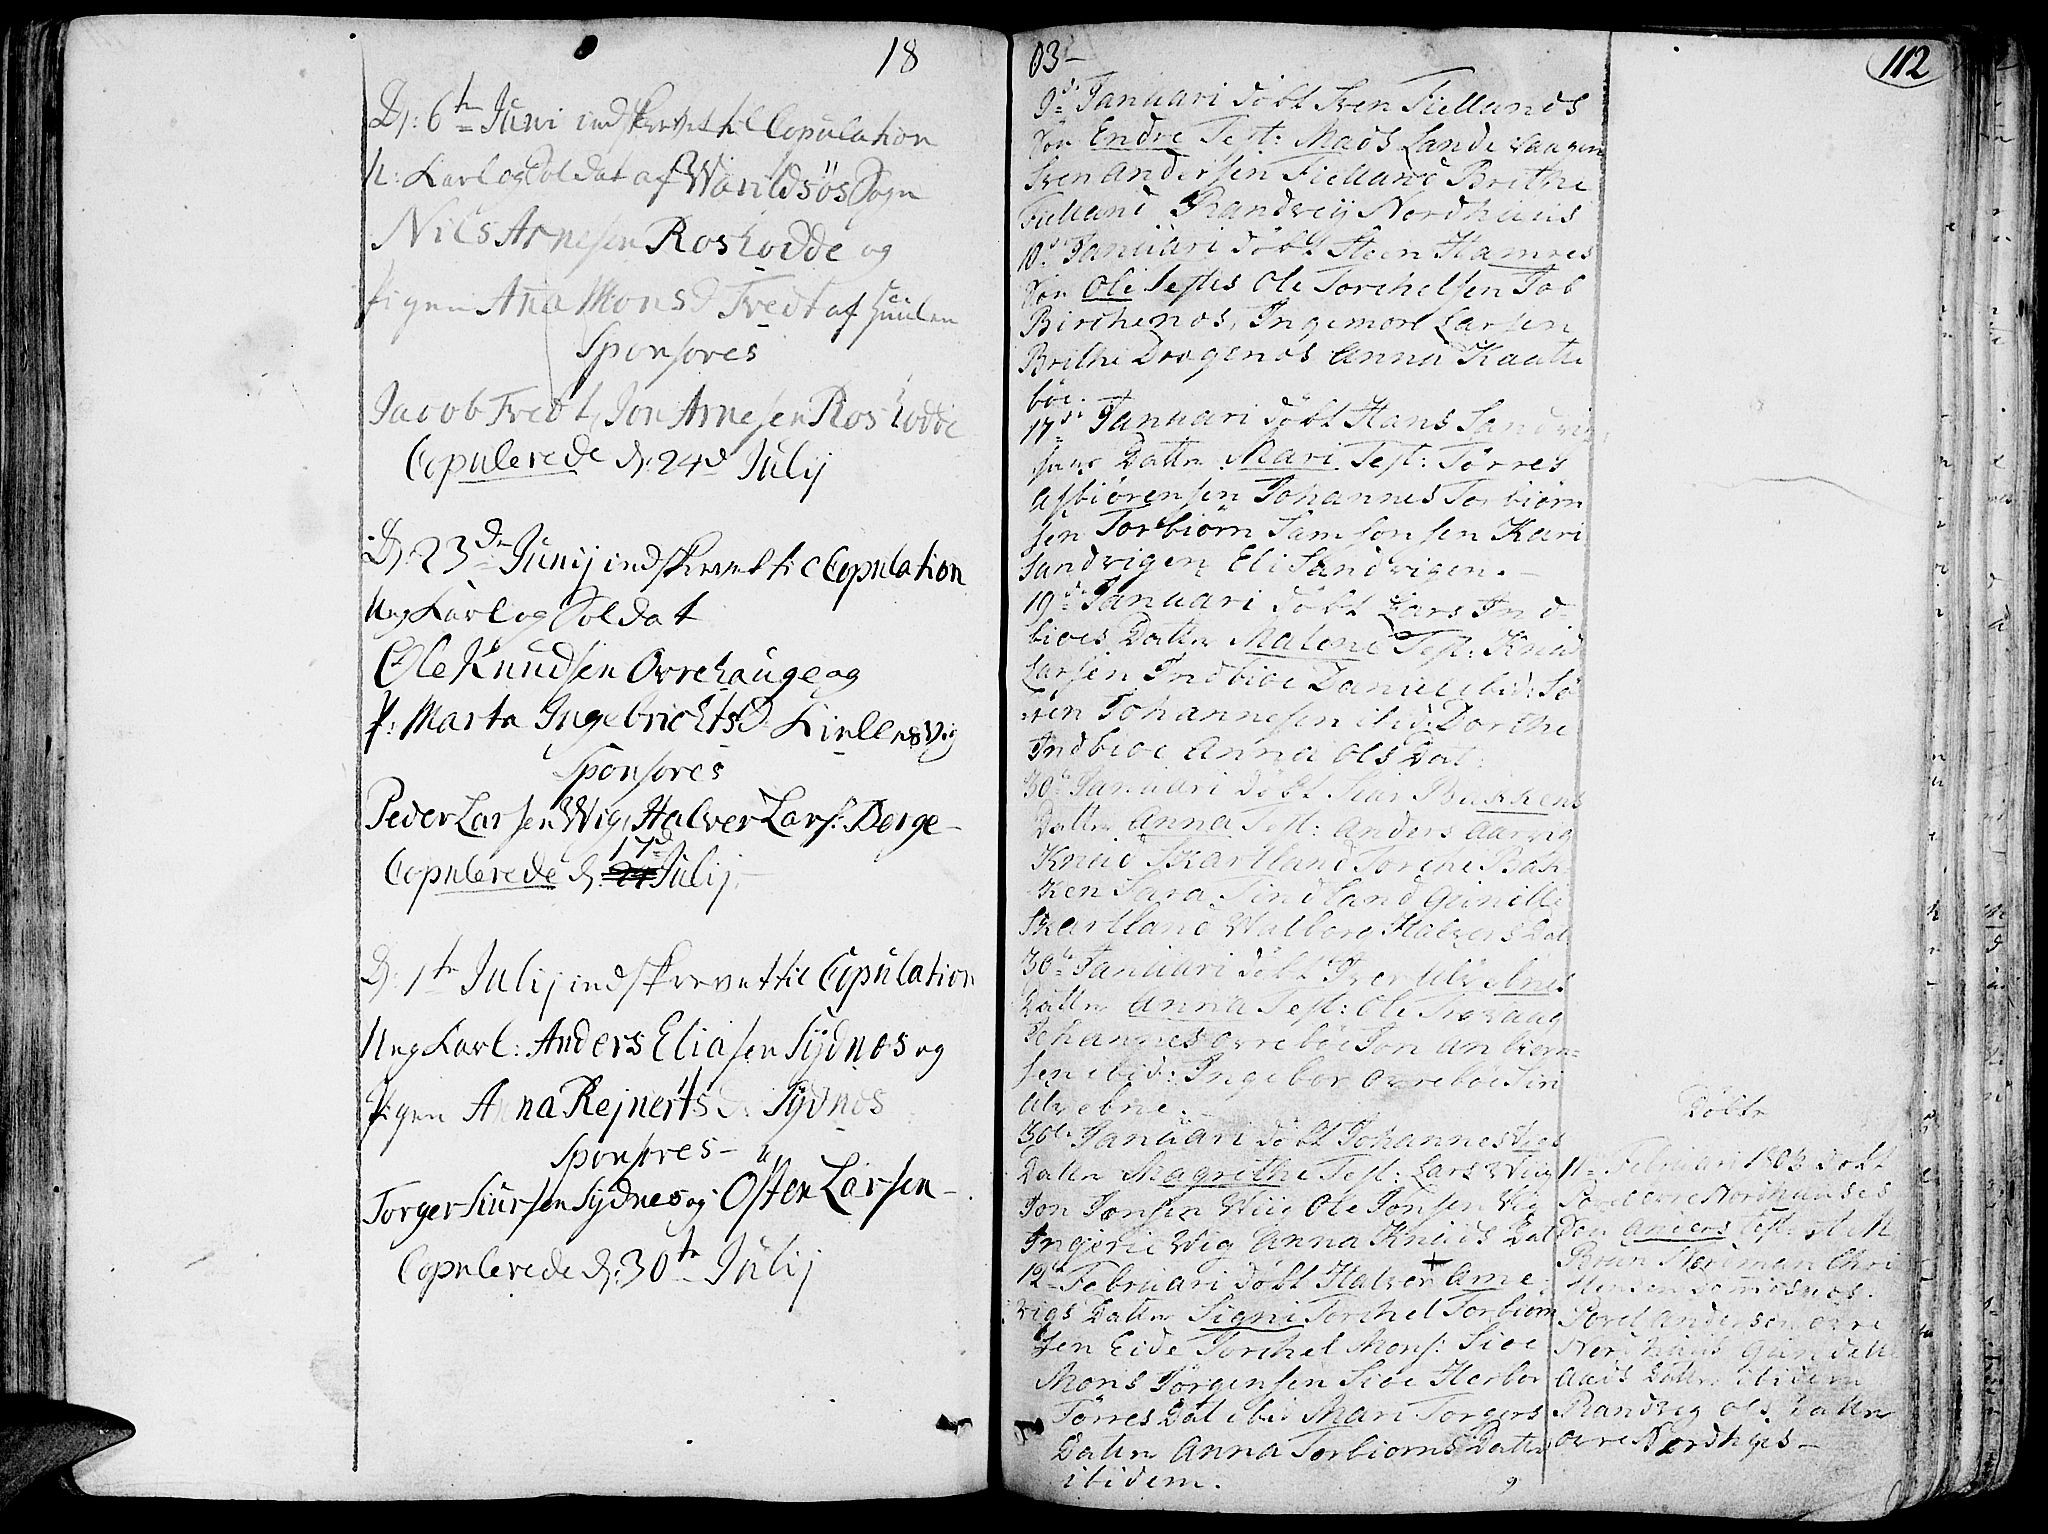 18
D: 6te Juni indskrevet til Copulation
U: Karl og Soldat af Warildsös Sogn
Nils Arnesen Roshodde og
Pigen Ana Monsd Tvedt af
Sponsores
Jacob Tvedt, Jon Arnesen Roshodde
Copulerede d: 24d Julij
D: 23de Junij indskrevet til Copulation
Ung Karl og Soldat
Ole Knudsen Ovrehauge og
P: Marta Ingebrichtsd Kielleswig
Sponsores
Peder Larsen Wig, Halver Lars: Berge
Copulerede d: 24 17d Julij.
D: 1te Julij indskrevet til Copulation
Ung Karl: Anders Eliasen Sydnes og
Pigen Anna Rejnerts D: Sydnes
Sponsores
Torger Siursen Sydnes og Osten Larsen
Copulerede d: 30te Julij
03
112
9de Januari döbt Sven Fiellands
Sön Endre Test: Mads Lande Vaagen
Sven Andersen Fielland Brithe
Fielland Randveij Nordhuus
10de Januari döbt Steen Hamres
Sön Ole Testes Ole Torchelsen Tob
Birchenos, Ingemorl Larsen
Brithe Dragenos Anna Kaatte
böe.
17de Januari döbt Hans Sandvig
sens Datter Mari Test: Törres
Asbiörensen Johannes Torbiörn
sen Torbiörn Samsonsen Kari
Sandvigen Eli Sandvigen.
19de Januari döbt Lars Ind
bioes Datter Malene Test: Knud
Larsen Indbioe Daniel ibid: Sö
ren Johannesen ibid: Dorthe
Indbioe Anna Ols Dat:
30te Januari döbt Siur Bakkens
Datter Anna Test: Anders Aarvig
Knud Skartland Torche Bak
ken Sara Sindland Gunille
Skartland Walborg Halvers Dat:
30te Januari döbt Iver Ulvebnes
Datter Anna Test: Ole
Johannes Ovreböe Jon Anbiorn
sen ibid: Ingebor Ovreböe Siri
Ulvebne.
30te Januari döbt Johannes Vigs
Datter Magrethe Test: Lars Wiig
Jon Jonsen Wiig Ole Jonsen Vig
Ingeri Wig Anna Knuds Dat
12te Februari döbt Halver Ame
vigs Datter Signi Torchel Torbiorn
sen Eide Torchel Mons: Sioe
Mons Jörgensen Sioe Herbor
Törres Dat ibid Mari Torgers
Datter Anna Torbiorns Datter
ibidem.
Döbte
11te Februari 1803 Döbt
Povel Ovre Nordhuuses
Sön Anders Test:
Brun Heriman Chri
stensen
Povel Andersen Ovre
Nordhuus Gundelle
Aads Datter ibidem
Randvig Ols Datter
Ovre Nordhuus